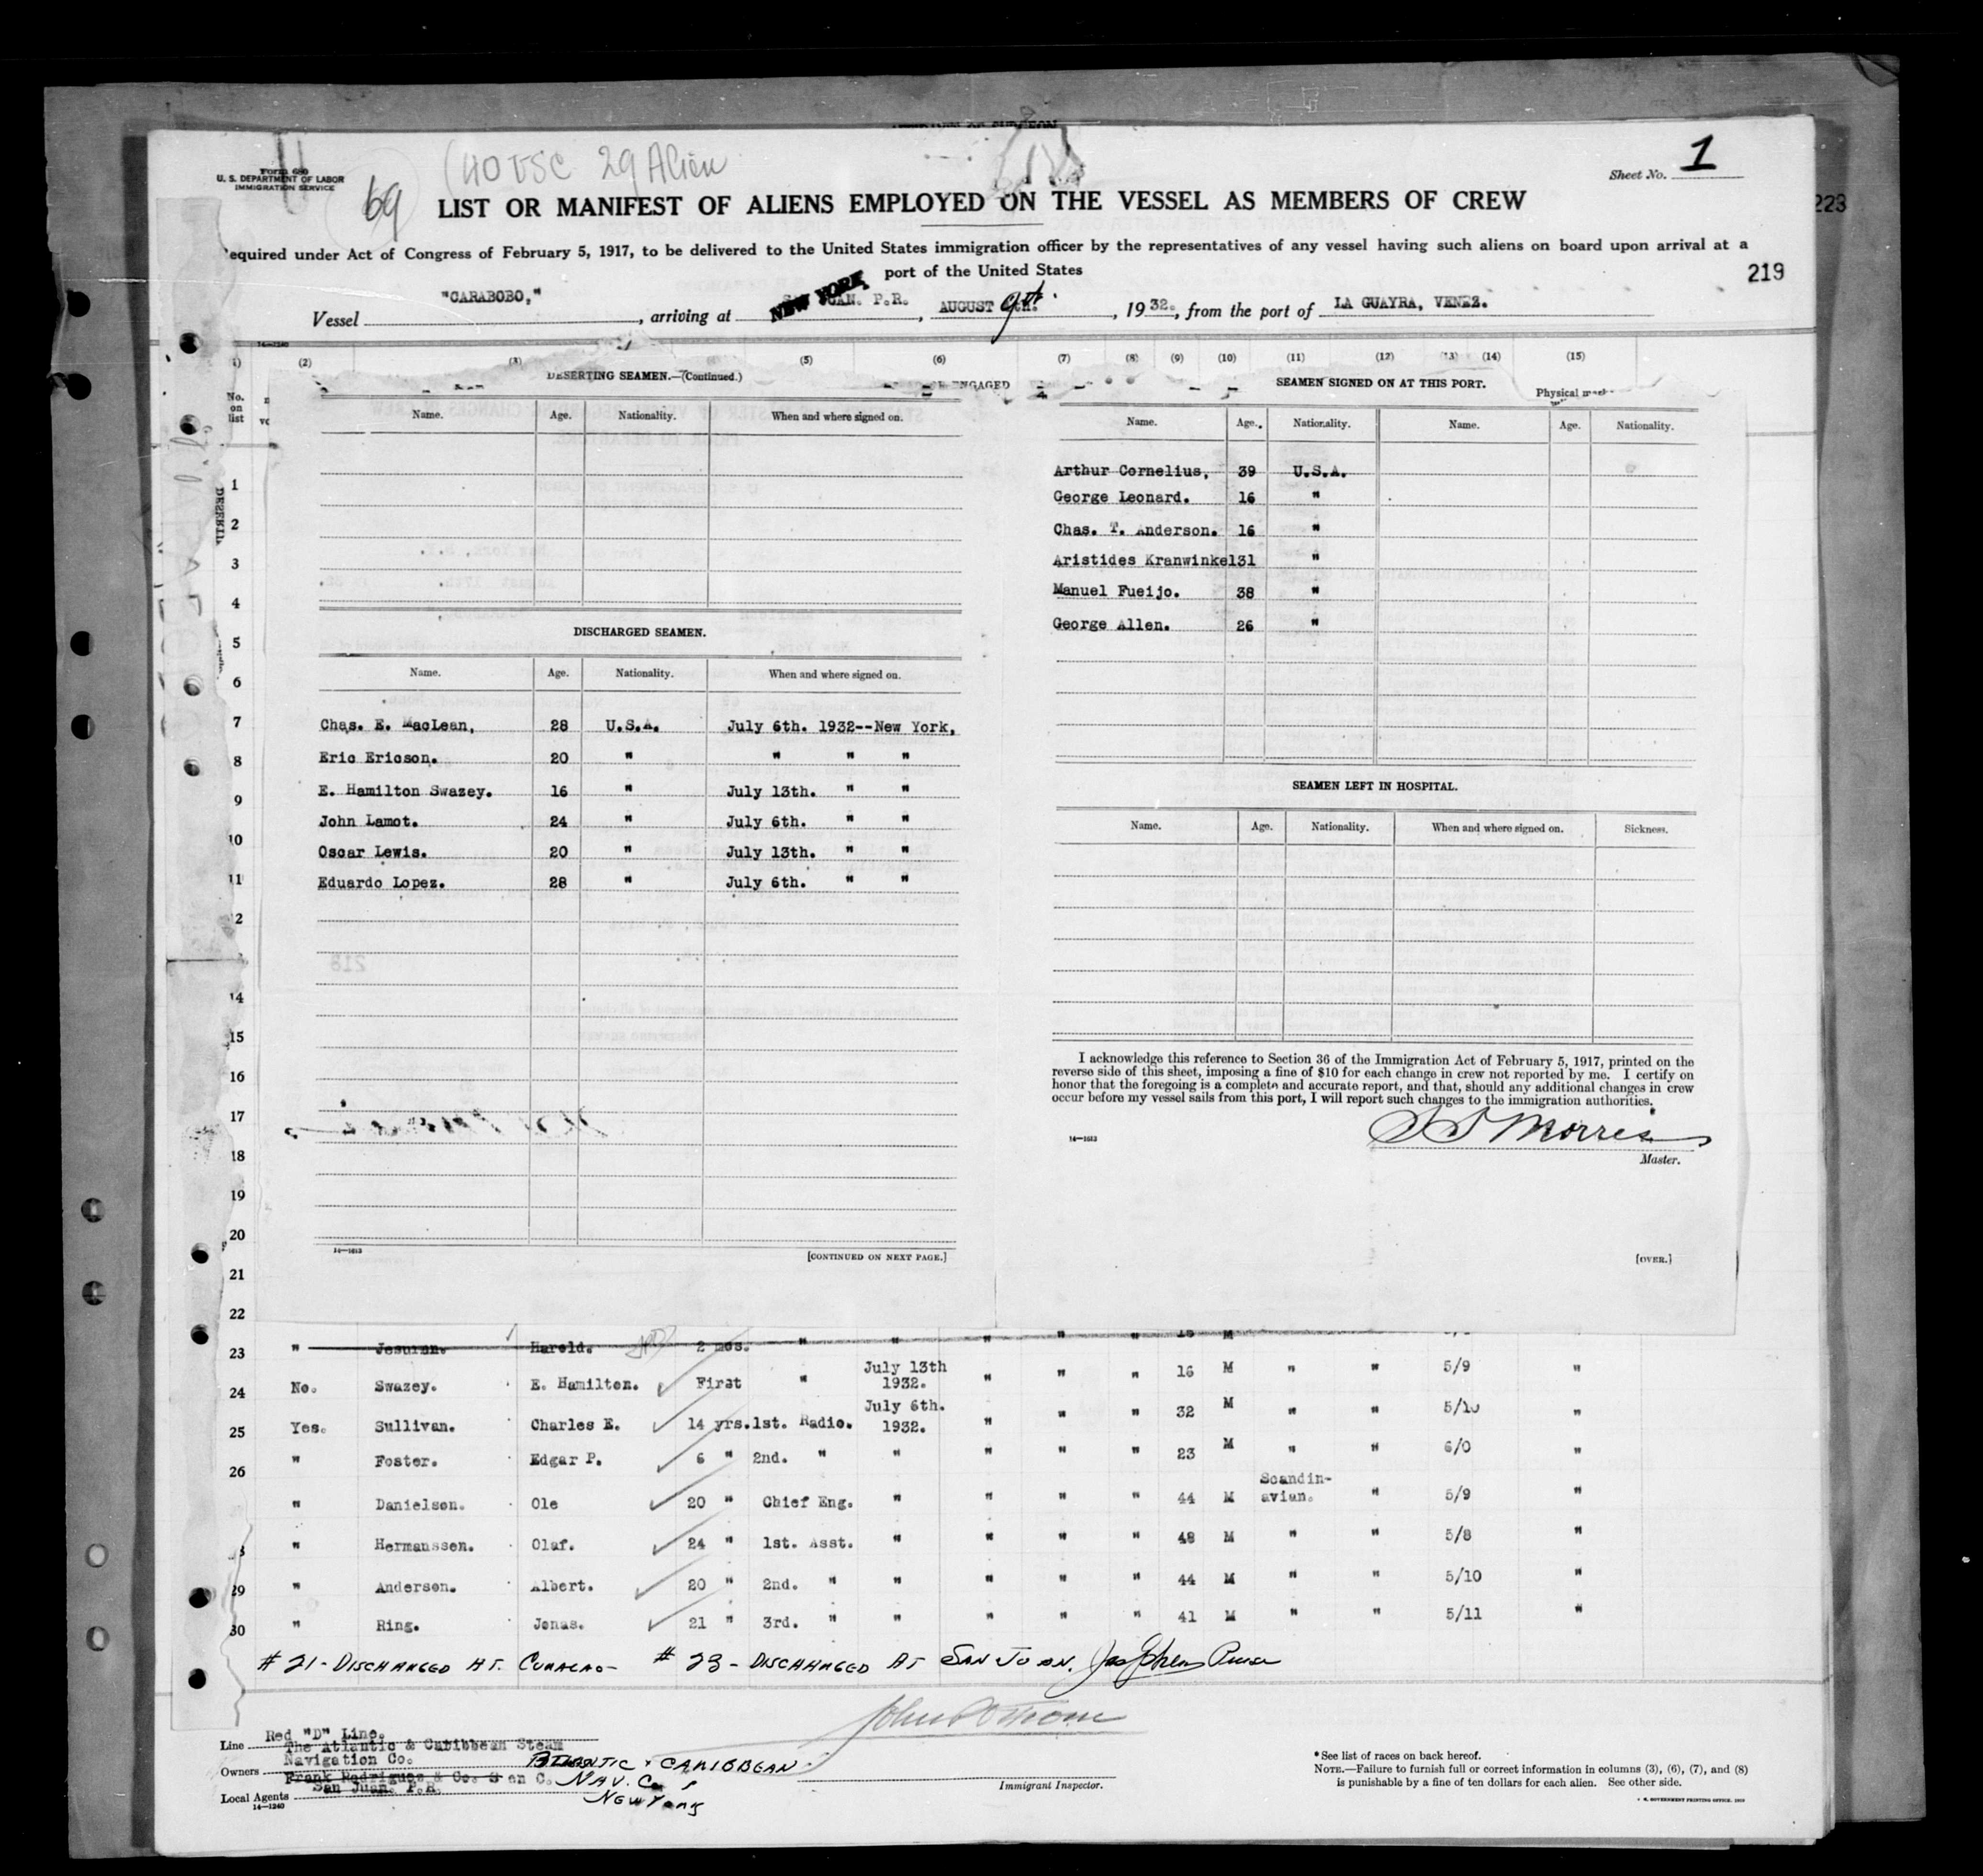 Form 680
U. S. DEPARTMENT OF LABOR
IMMIGRATION SERVICE
69
(40 USC 29 Alien
Sheet No. 1
LIST OR MANIFEST OF ALIENS EMPLOYED ON THE VESSEL AS MEMBERS OF CREW
223
equired under Act of Congress of February 5, 1917, to be delivered to the United States immigration officer by the representatives of any vessel having such aliens on board upon arrival at a
port of the United States
219
Vessel "CARABOBO," , arriving at NEW YORK JUAN. P.R. , AUGUST 9th. , 19 32. , from the port of LA GUAYRA, VENEZ.
14—1240
(2) (3) (5) (6) (7) (8) (9) (10) (11) (12) (13) (14) (15)
DESERTING SEAMEN.—(Continued.)
ENGAGED
SEAMEN SIGNED ON AT THIS PORT.
Physical
No. on list
Name. Age. Nationality. When and where signed on.
Name. Age. Nationality. Name. Age. Nationality.
Arthur Cornelius, 39 U.S.A.
George Leonard. 16 "
Chas. T. Anderson. 16 "
Aristides Kranwinkel 31 "
Manuel Fueijo. 38 "
George Allen. 26 "
1
2
3
4
5
6
7
8
9
10
11
2
14
15
16
17
18
19
20
21
22
DISCHARGED SEAMEN.
Name. Age. Nationality. When and where signed on.
Chas. E. MacLean, 28 U.S.A. July 6th. 1932--New York,
Eric Ericson. 20 " " " "
E. Hamilton Swazey. 16 " July 13th. " "
John Lamot. 24 " July 6th. " "
Oscar Lewis. 20 " July 13th. " "
Eduardo Lopez. 28 " July 6th. " "
14—1613
[CONTINUED ON NEXT PAGE.]
SEAMEN LEFT IN HOSPITAL.
Name. Age. Nationality. When and where signed on. Sickness.
I acknowledge this reference to Section 36 of the Immigration Act of February 5, 1917, printed on the
reverse side of this sheet, imposing a fine of $10 for each change in crew not reported by me. I certify on
honor that the foregoing is a complete and accurate report, and that, should any additional changes in crew
occur before my vessel sails from this port, I will report such changes to the immigration authorities.
14—1613
Morris
Master.
[OVER.]
23 " Jesurun. Harold. 2 mos. " " " " " M
24 No. Swazey. E. Hamilton. First " July 13th 1932. " " " 16 M " " 5/9 "
25 Yes. Sullivan. Charles E. 14 yrs. 1st. Radio. July 6th. 1932. " " " 32 M " " 5/10 "
26 " Foster. Edgar P. 6 " 2nd. " " " " " 23 M " " 6/0 "
" Danielson. Ole 20 " Chief Eng. " " " " 44 M Scandin-avian. " 5/9 "
" Hermanssen. Olaf. 24 " 1st. Asst. " " " " 48 M " " 5/8 "
29 " Anderson. Albert. 20 " 2nd. " " " " " 44 M " " 5/10 "
30 " Ring. Jonas. 21 " 3rd. " " " " " 41 M " " 5/11 "
#21 - DISCHARGED AT. CURACAO - #23 - DISCHARGED AT SAN JUAN.
Line Red "D" Line.
The Atlantic & Caribbean Steam
Navigation Co.
Owners ATLANTIC & CARIBBEAN
Frank Rodrigues & Co. S an C. NAV. Co
San Juan. P.R.
Local Agents New York
14—1240
Immigrant Inspector.
* See list of races on back hereof.
NOTE.—Failure to furnish full or correct information in columns (3), (6), (7), and (8)
is punishable by a fine of ten dollars for each alien. See other side.
GOVERNMENT PRINTING OFFICE.